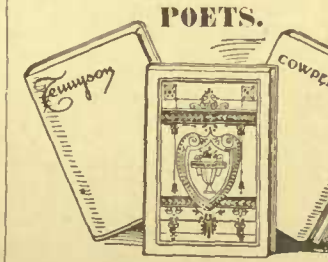 POETS.
Tennyson
COWPE